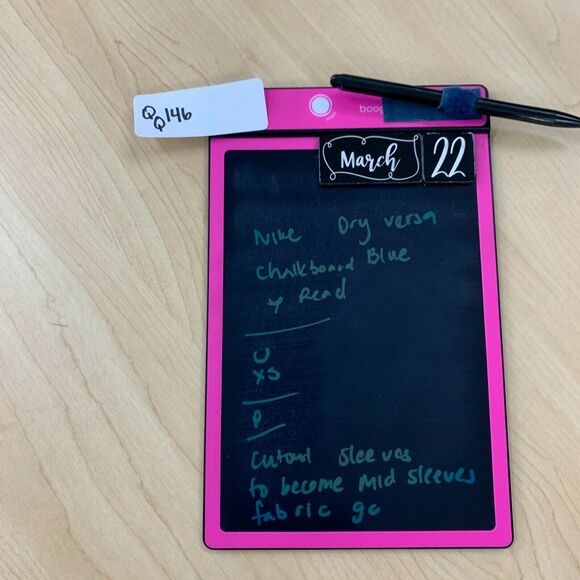 QQ146
boog
March 22
Nike Dry versa
Chalkboard Blue
y Read
U
XS
P
Cutout Sleeves
to become Mid sleeves
fabric gc